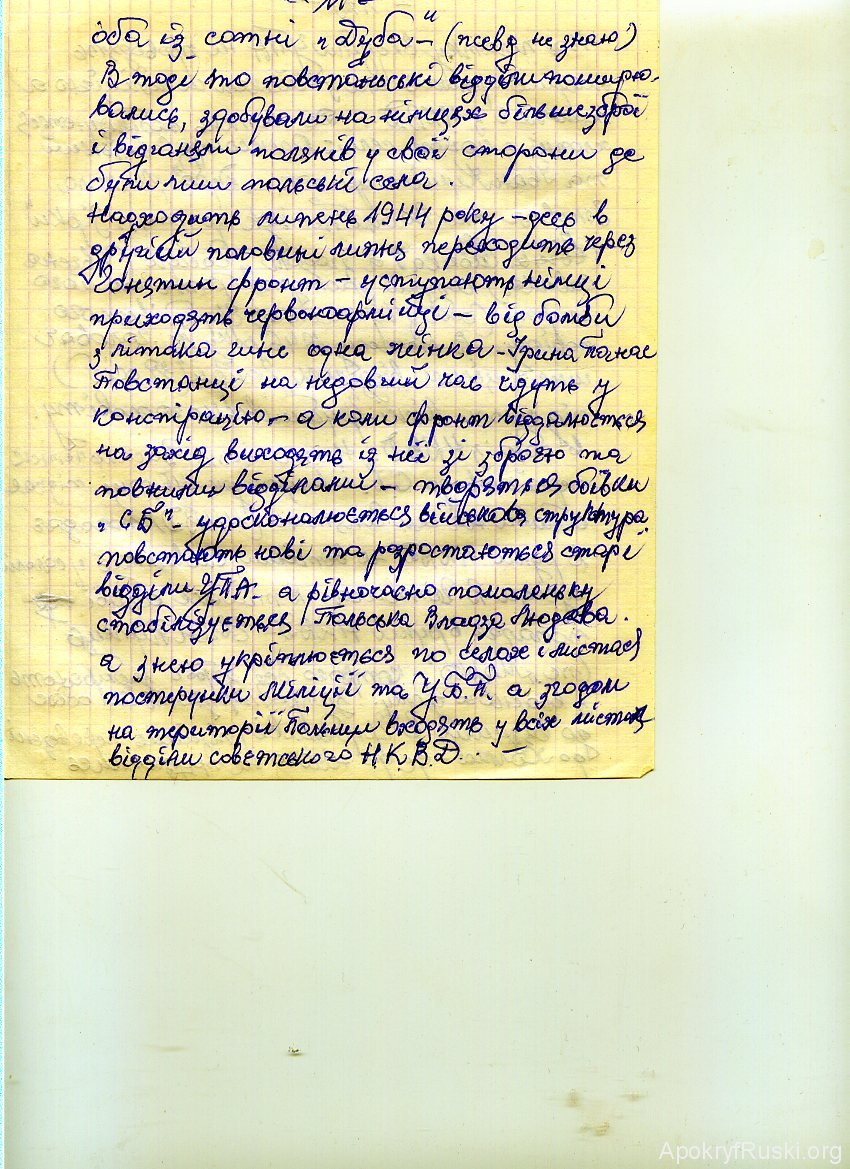 - 11 -
оба із сотні "Дуба" - (псевд не знаю)
В тоді то повстанські відділи поширю-
вались, здобували на німцях більше зброї
і відганяли поляків у свої сторони де
були лиш польські села.
Надходить липень 1944 року - десь в
другій половині липня переходить через
фронт - уступають німці
приходять червоноармійці - від бомби
з літака гине одна жінка - Ірина Панас
Повстанці на недовгий час ідуть у
конспірацію - а коли фронт віддалюється
на захід виходять із неї зі зброєю та
повними відділами - творяться боївки
"СБ" - удосконалюється військова структура
повстають нові та розростаються старі
відділи УПА - а рівночасно помаленьку
стабілізується Польська Владза Людова.
а з нею укріплюється по селах і містах
постерунки Міліції та У.Б.П. а згодом
на території Польщи входять у всіх містах
відділи совєтського Н.К.В.Д. -
ApokryfRuski.org